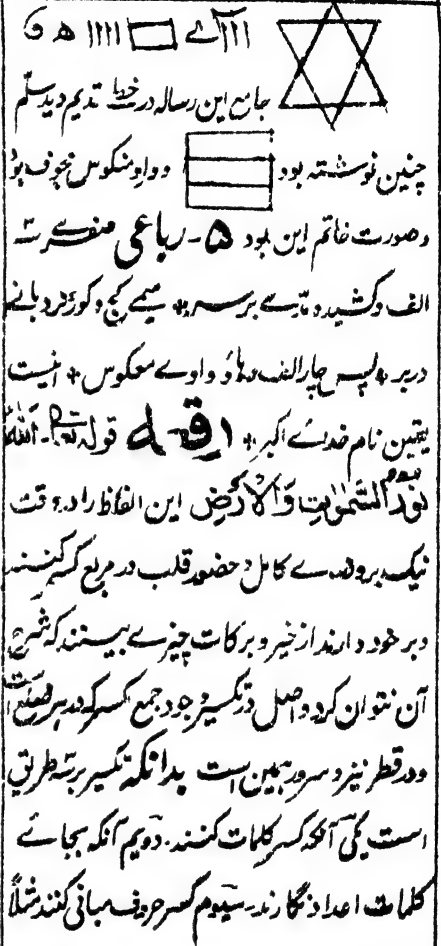 جامع این رساله در خط قدیم دیدسلم
چنین نوشته بود و واو منکوس مجوف بود
وصورت خاتم این بود ۵- رباعی
الف و کشیده مدے برسر * میمے کج و کور
دربر * پس چار الف وهاؤ و واوے معکوس * اینست
یقین نام خدائے اکبر * قوله تعالی- اَللّٰهُ
نُورُ السَّمٰوٰتِ وَالْاَرْضِ این الفاظ را در وقت
نیک بروندے کامل و حضور قلب در مربع کسر کنند
و بر خود دارند از خیر و برکات چیزے بینند که شرح
آن نتوان کرد و اصل در تکسیر وجود جمع کسر که در هر ضلع است
ودر قطر نیز همین است بدانکه تکسیر برسه طریق
است یکی آنکه کسر کلمات کنند. دویم آنکه بجائے
کلمات اعداد نگارند. سیوم کسر حروف مبانی کنند مثلاً